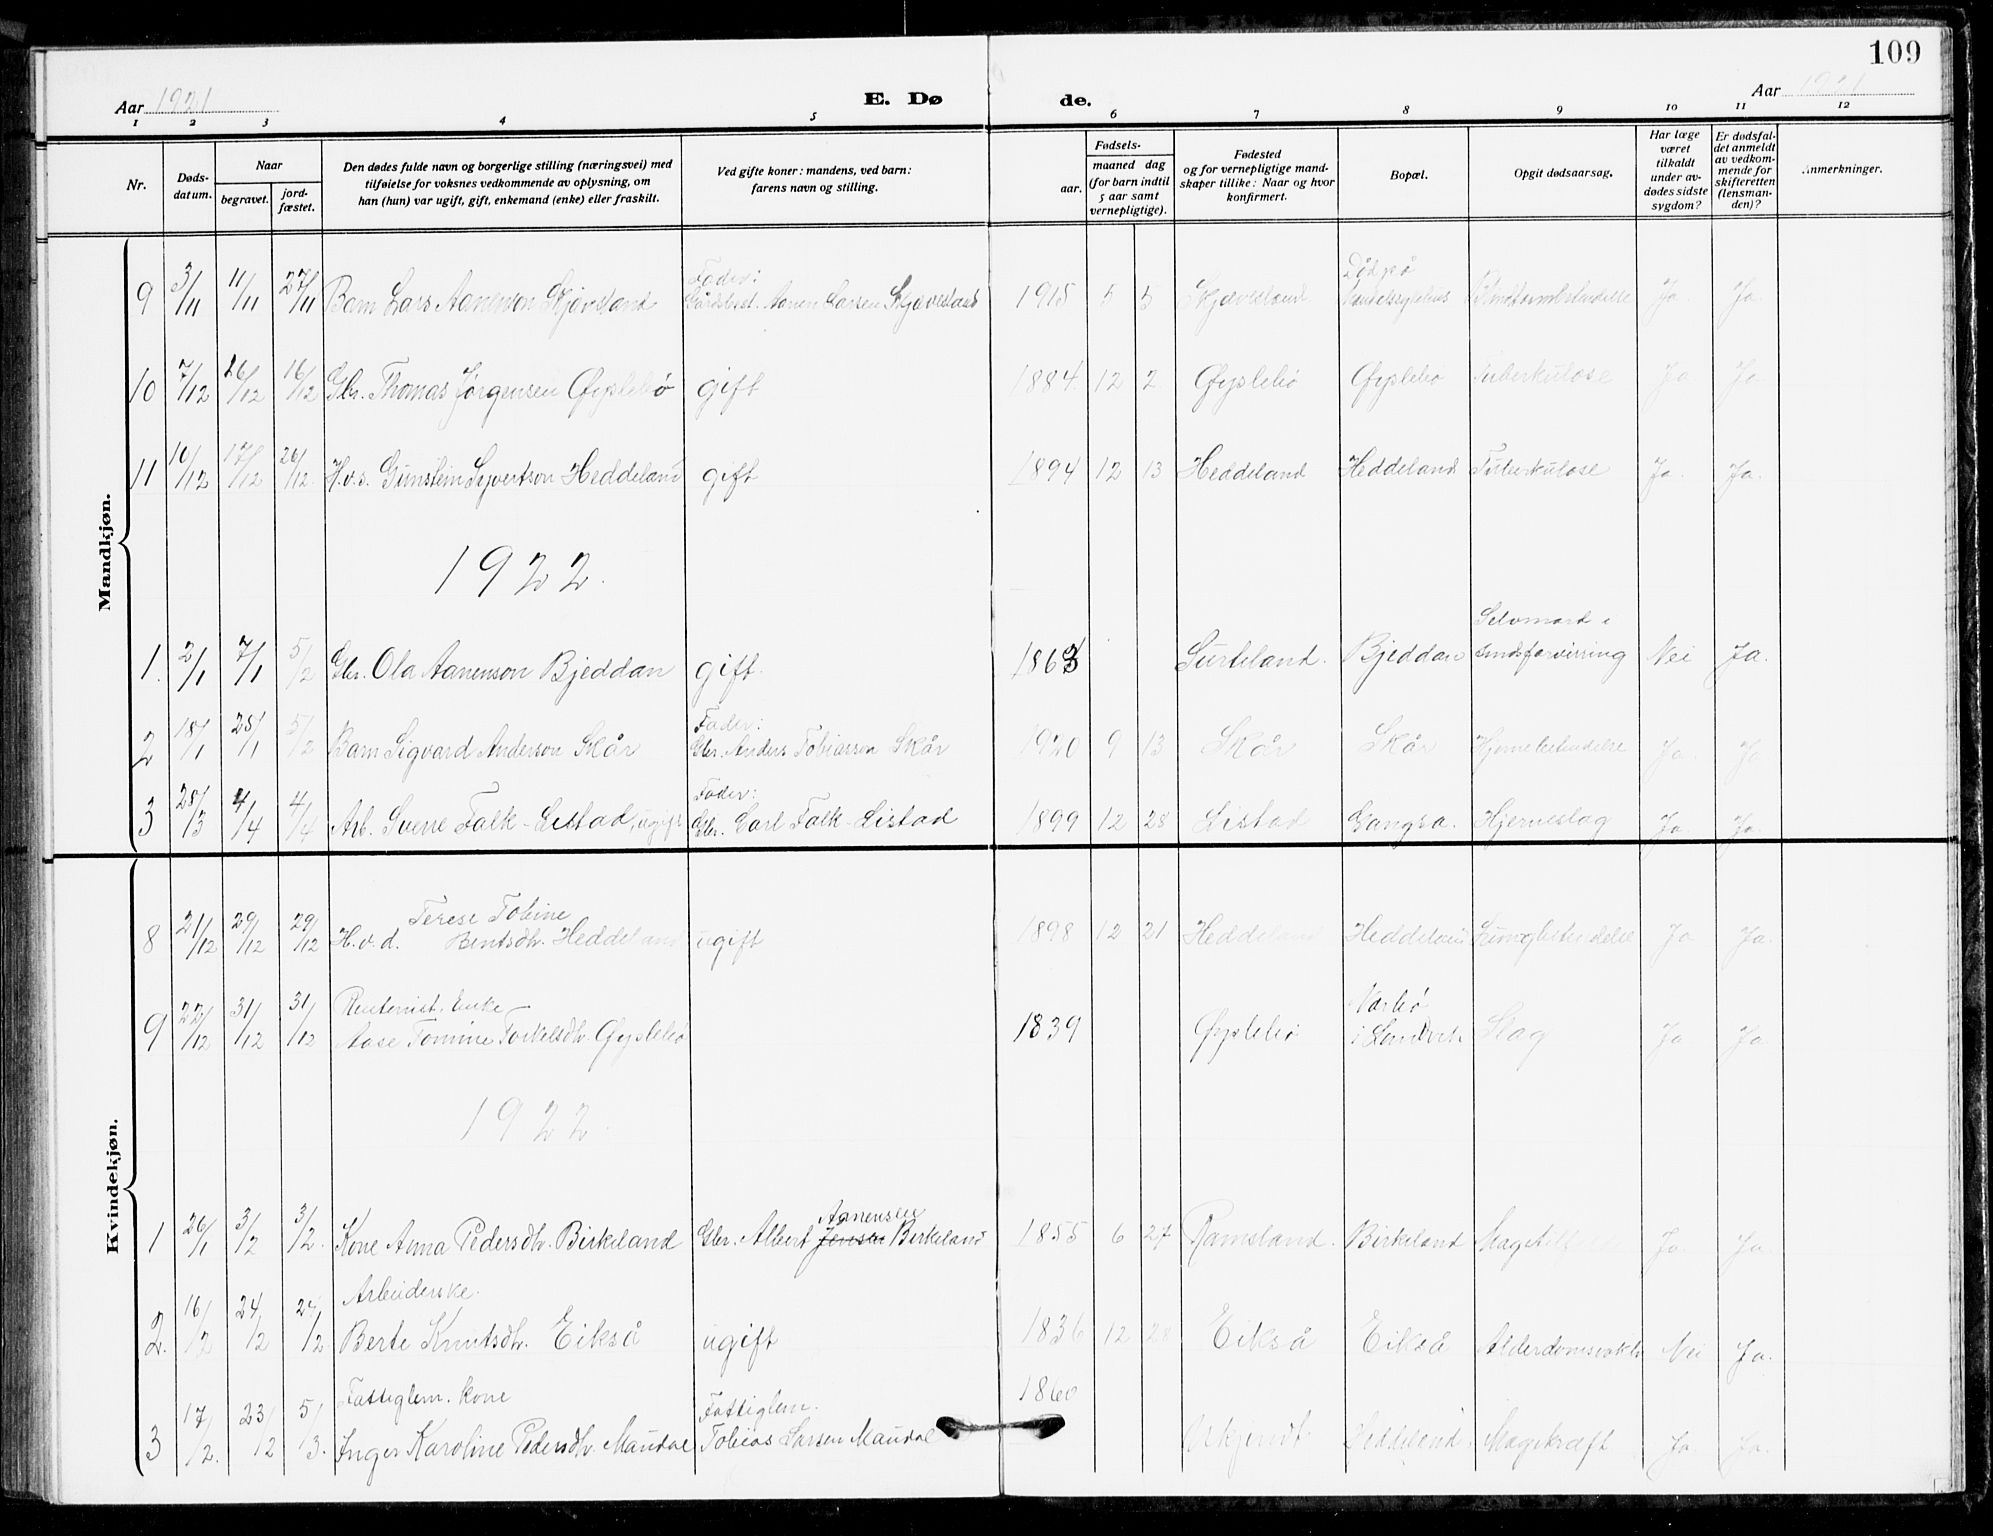 109
Aar 1921
E. Dø
de.
Aar 1921
1 2 3 4 5 6 7 8 9 10 11 12
Nr.
Døds-
datum.
Naar
begravet.
jord-
fæstet.
Den dødes fulde navn og borgerlige stilling (næringsvei) med
tilføielse for voksnes vedkommende av oplysning, om
han (hun) var ugift, gift, enkemand (enke) eller fraskilt.
Ved gifte koner: mandens, ved barn:
farens navn og stilling.
Fødsels-
aar.
maaned dag
(for barn indtil
5 aar samt
vernepligtige).
Fødested
og for vernepligtige mand-
skaper tillike: Naar og hvor
konfirmert.
Bopæl.
Opgit dødsaarsag.
Har læge
været
tilkaldt
under av-
dødes sidste
sygdom?
Er dødsfal-
det anmeldt
av vedkom-
mende for
skifteretten
(lensman-
den)?
Anmerkninger.
Mandkjøn.
Fader: Død på
9 3/11 11/11 27/11 Barn Lars Aanenson Skjævsland Gårdbest. Aanen Larsen Skjævesland 1915 5 5 Skjævesland Ja Ja
10 7/12 16/12 16/12 Gbr. Thomas Jørgensen Øyslebø gift 1884 12 2 Øyslebø Øyslebø Tuberkulose Ja Ja
11 10/12 17/12 26/12 H.v.s. Gunstein Syvertson Heddeland gift 1894 12 13 Heddeland Heddeland Tuberkulose Ja. Ja.
1922.
Selvmord i
1. 2/1 7/1 5/2 Gbr. Ola Aanenson Bjeddan gift. 1863 Surteland. Bjeddan sindsforvirring Nei Ja.
Fader:
2 18/1 28/1 5/2 Barn Sigvard Anderson Skår Gbr. Anders Tobiassen Skår 1920 9 13 Skår Skår Hjernebetendelse Ja. Ja
Fader:
3 28/3 4/4 4/4 Arb. Sverre Falk-Leistad, ugift Gbr. Carl Falk-Leistad 1899 12 28 Leistad Gangsa. Hjerneslag Ja. Ja.
Kvindekjøn.
Terese Tobine
8 21/12 29/12 29/12 H.v.d. Bentsdtr. Heddeland ugift 1898 12 21 Heddeland Heddeland Lungebetendelse Ja Ja.
Rentenist. Enke- Vorbø
9 22/12 31/12 31/12 Aase Tomine Torkelsdtr. Øyslebø 1839 Øyslebø i Landvik Slag Ja Ja
1922.
Aanensen
1 26/1 3/2 3/2. Kone Anna Pedersdtr. Birkeland Gbr. Albert Jensen Birkeland 1855 6 27 Ramsland. Birkeland Ja. Ja
Arbeiderske.
2. 16/2 24/2 24/2. Berte Knutsdtr. Eikså ugift 1836 12 28 Eikså Eikså Alderdomssvakh. Nei Ja.
Fattiglem. Kone Fattiglem. 1860
3 17/2. 23/2 5/3. Inger Karoline Pedersdtr. Maudal Tobias Larsen Maudal Ukjendt Heddeland. Magekræft Ja. Ja.